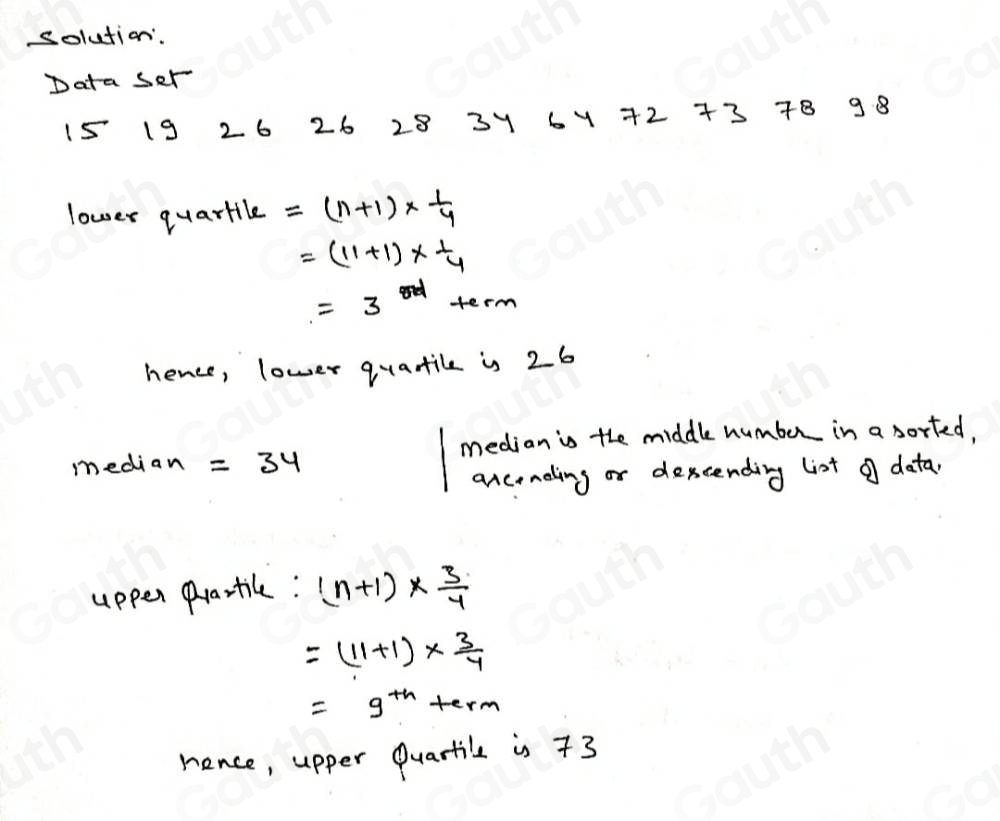 Solution:
Data set
15 19 26 26 28 34 64 72 73 78 98
lower quartile = (n+1) × 1/4
= (11+1) × 1/4
= 3 rd term
hence, lower quartile is 26
median = 34
median is the middle number in a sorted,
ascending or descending list of data.
upper Quartile : (n+1) × 3/4
= (11+1) × 3/4
= 9th term
hence, upper Quartile is 73